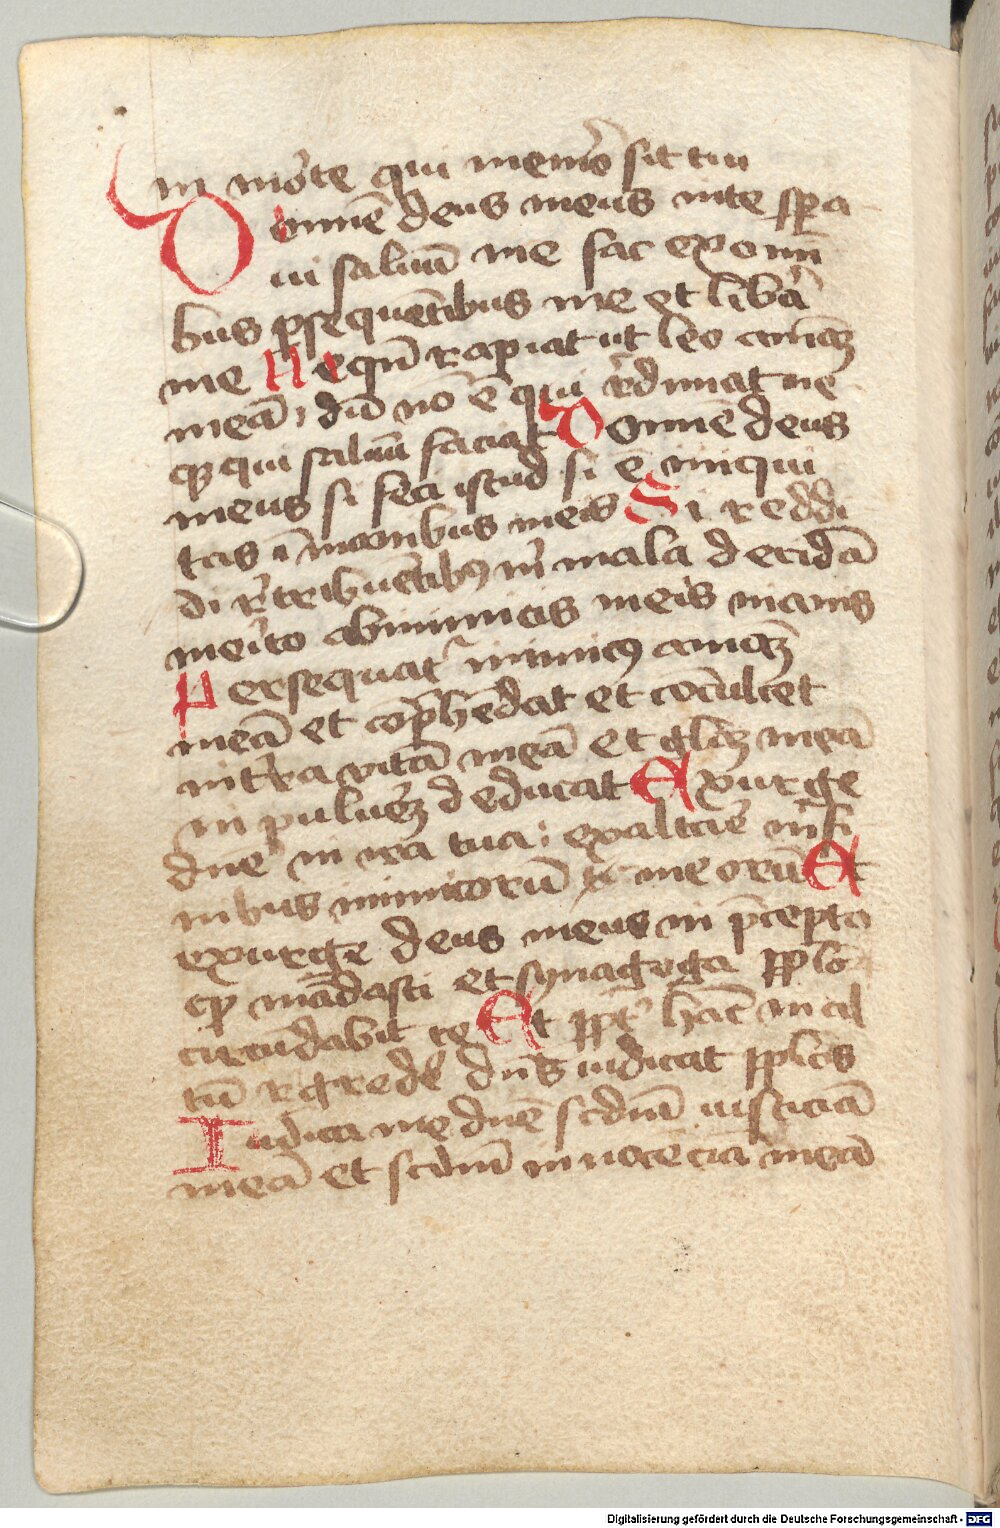 in morte qui memor̄ sit tui
Domine deus meus inte spera
ui saluū me fac ex omni
bus ꝑsequētibus me et libera
me Nequn̄ rapiat ut leo animā
meā, dū nō ē qui redimat ne
qꝫ qui saluū faciat Domine deus
meus si feci istud si ē iniqui
tas ī manibus meis Si reddi
di r̄tribuētibꝰ m̄ mala decidā
merito ab inimicis meis inanis
Persequatᷣ inimicꝰ animā
meā et cōprehēdat et cōculcet
in terra vitā meā et gl̄iā meā
in puluerē deducat Exurge
dn̄e in ira tua: exaltare in fi
nibus inimicorū meorū Et
exurge deus meus in p̄cepto
qđ mādasti et synagoga pplo
circūdabit te Et ppt̄ hāc in al
tū regredē dn̄s iudicat pplos
Iudica me dn̄e scdm̄ iusticiā
meā et scdm̄ innocēciā meā
Digitalisierung gefördert durch die Deutsche Forschungsgemeinschaft - DFG